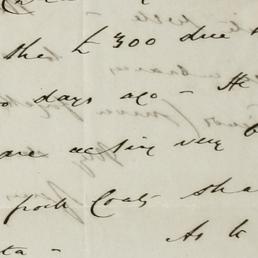 the £300 due
days ago - He
are acting very b
frock Coats sha
ta - As to